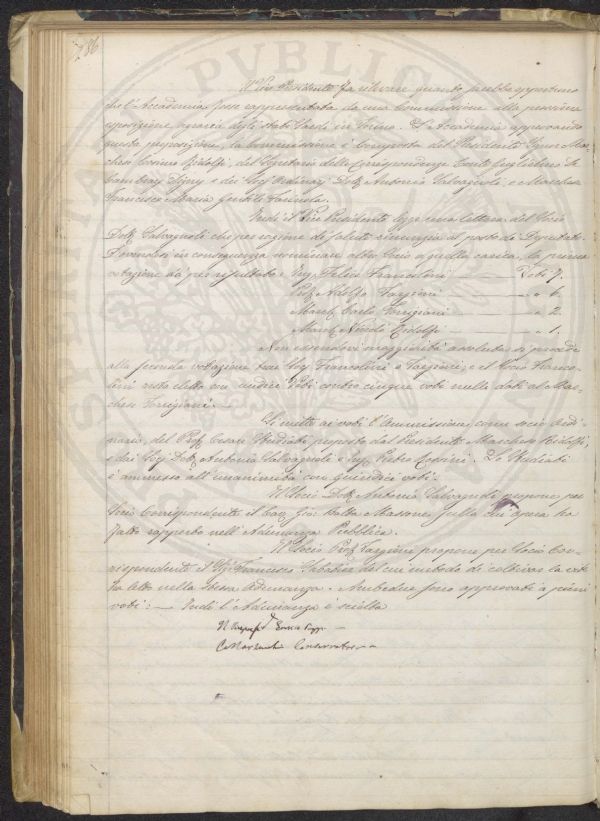 286
Il Vice Presidente fa rilevare quanto sarebbe opportuno
che l'Accademia fosse rappresentata da una Commissione alla prossima
esposizione agraria degli Stati Sardi in Torino. L'Accademia approvando
questa proposizione, la Commissione è composta del Presidente Signor Mar-
chese Cosimo Ridolfi, del Segretario delle Corrispondenze Conte Guglielmo de
Cambray Digny e dei Sigg. Ordinarj Dott. Antonio Salvagnoli, e Marchese
Francesco Maria Gentile Farinola.
Quindi il Vice Presidente legge una lettera del Socio
Dott. Salvagnoli che per ragione di salute rinunzia al posto di Deputato.
Dovendosi in conseguenza nominare altro Socio a quella carica, la prima
votazione dà per resultato: Ing. Felice Francolini — Voti 7.
Prof. Adolfo Targioni — " 6.
March. Carlo Torrigiani — " 2.
March. Niccolò Ridolfi — " 1.
Non essendovi maggiorità assoluta si procede
alla seconda votazione tra i Sigg. Francolini e Targioni, e il Socio Franco-
lini resta eletto con undici Voti contro cinque voti nulli dati al Mar-
chese Torrigiani. —
Si mette ai voti l'ammissione come socio ordi-
nario, del Prof. Cesare Studiati proposto dal Presidente Marchese Ridolfi,
e dai Sigg. Dott. Antonio Salvagnoli e Ing. Pietro. Lo Studiati
è ammesso all'unanimità con quindici voti.
Il Socio Dott. Antonio Salvagnoli propone per
Socio Corrispondente il Cav. Gio: Batta Massone, sulla cui opera ha
fatto rapporto nell'Adunanza Pubblica.
Il Socio Prof. Targioni propone per Socio Cor-
rispondente il Sig. Francesco del cui metodo di coltivar la vite
ha letto nella stessa Adunanza. Ambedue sono approvati a pieni
voti: — Quindi l'Adunanza è sciolta
Il
Conservatore